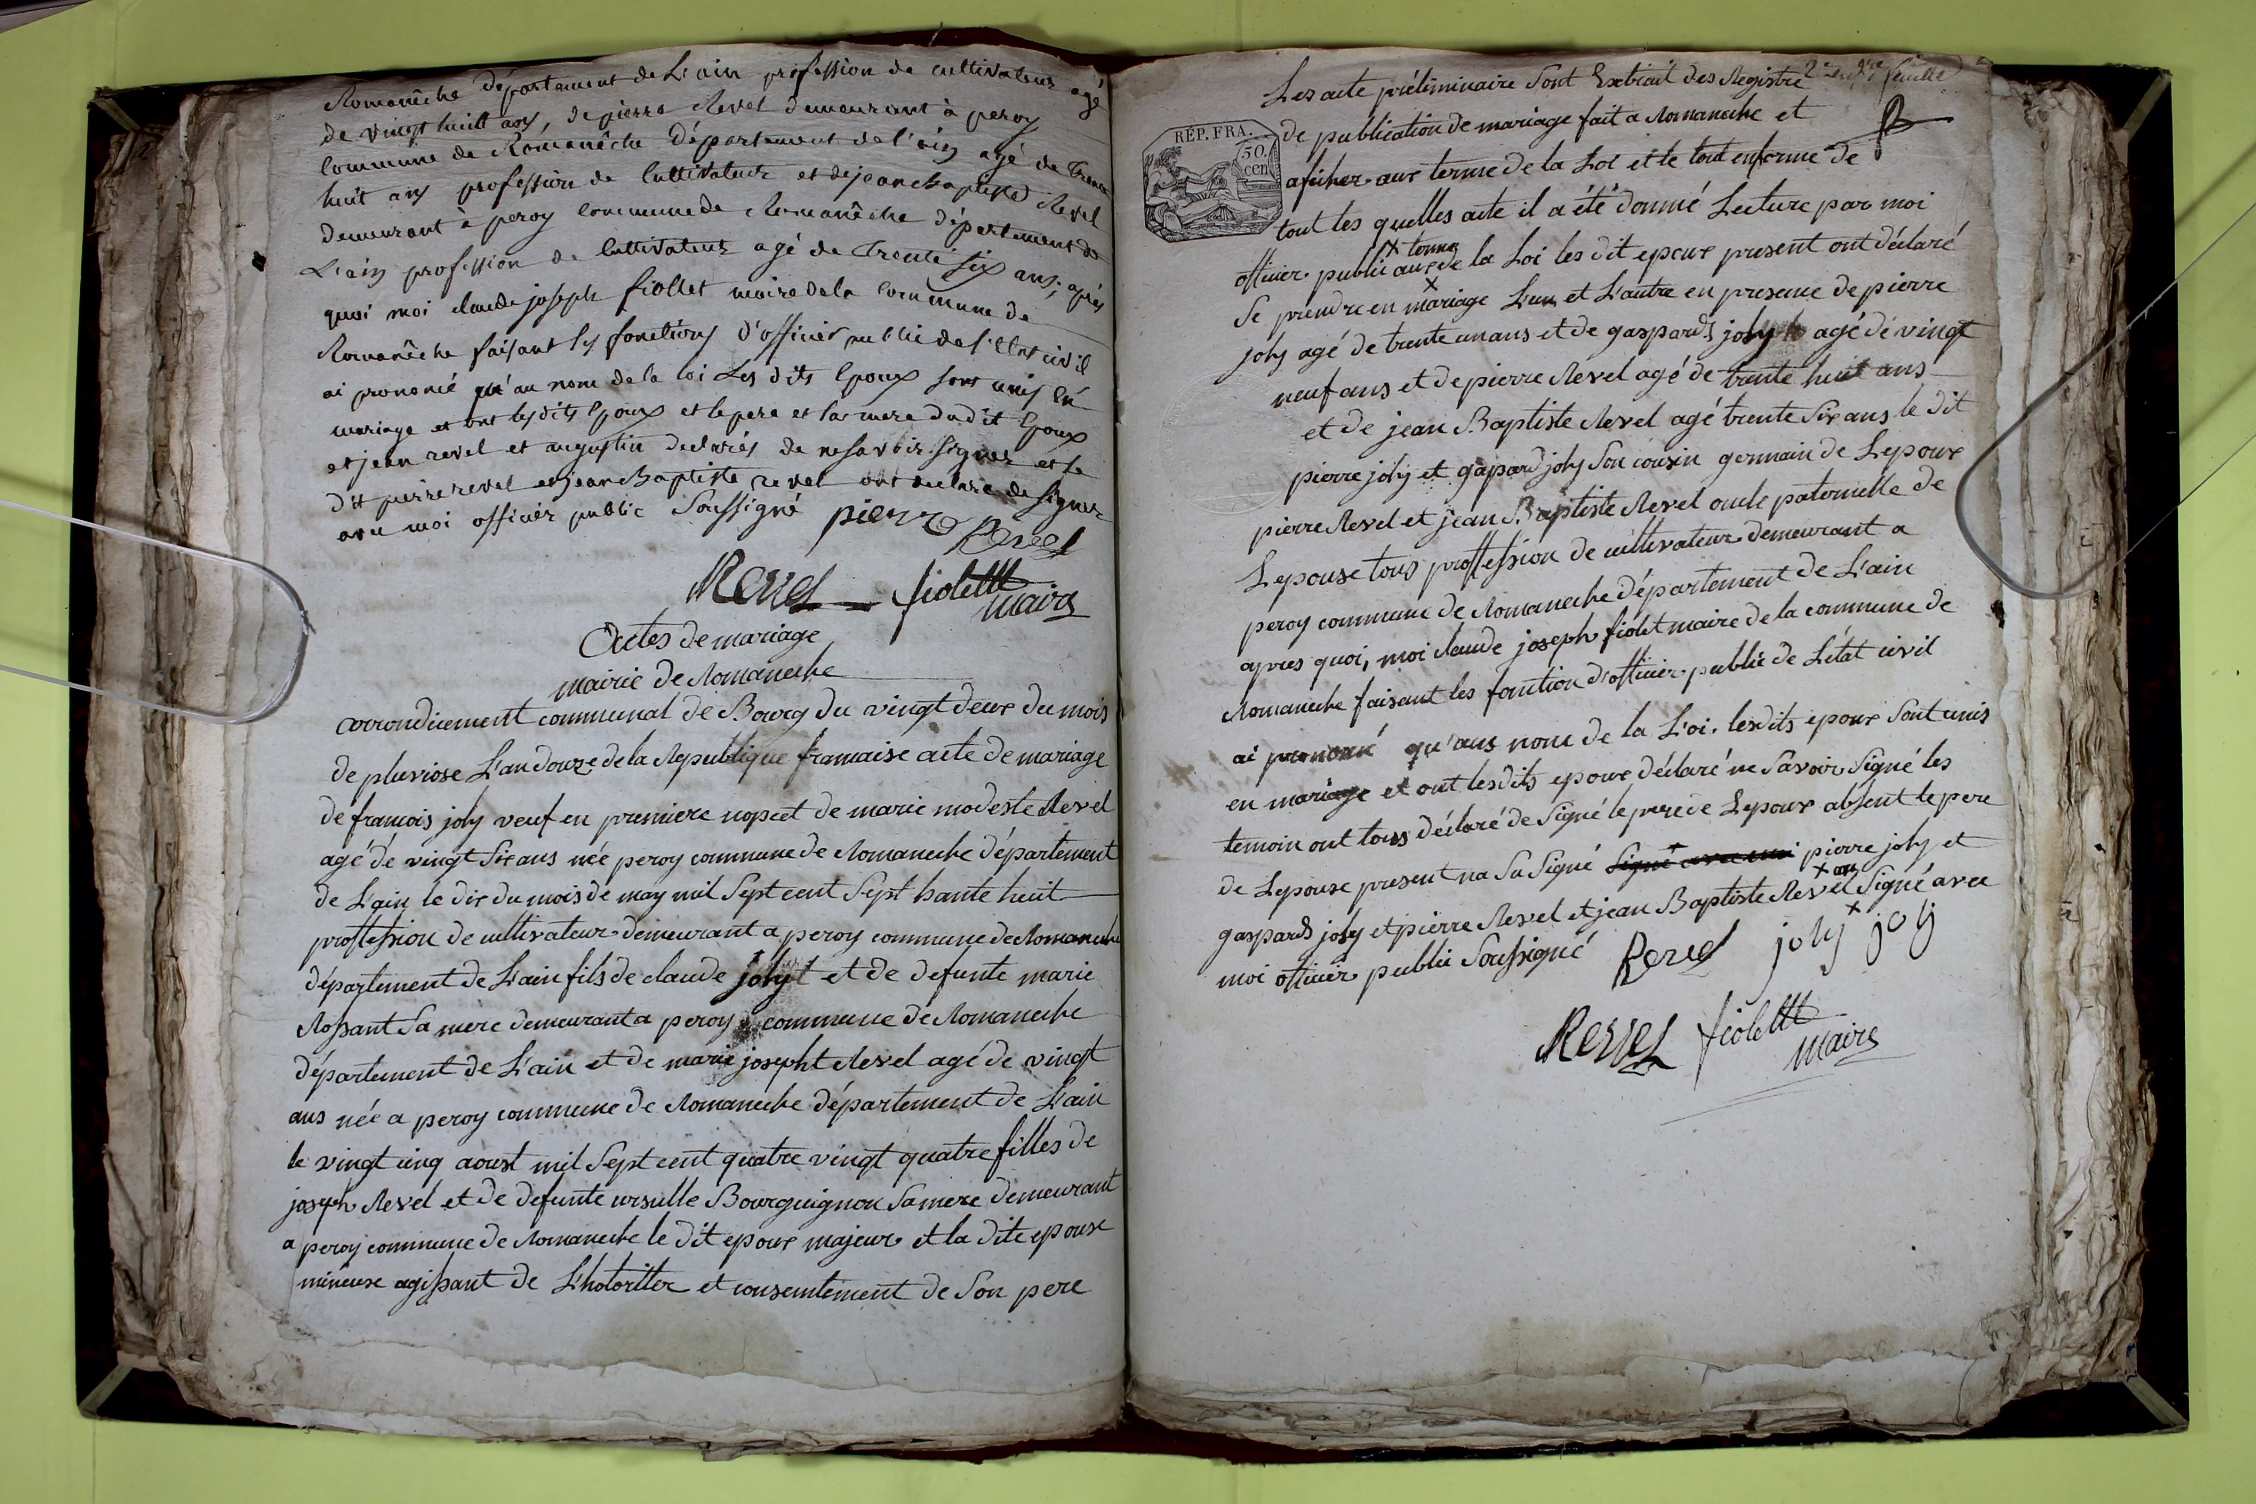 Romanêche département de L'ain profession de cultivateur agé
de vingt huit ans, de pierre Revel demeurant à peroy
Commune de Romanêche Département de l'ain agé de Trente
huit ans profession de Cultivateur et de jean baptiste Revel
demeurant à peroy commune de Romanêche département de
L'ain profession de Cultivateur agé de Trente six ans, après
quoi moi claude joseph fiollet maire de la Commune de
Romanêche faisant les fonctions d'officier public de l'Etat civil
ai prononcé qu'au nom de la loi Les dits Epoux sont unis En
mariage et ont lesdits Epoux et le pere et la mere dudit Epoux
et jean revel et augustin declarés de ne savoir signer et le
dit pierre revel et jean Baptiste revel ont déclaré de signer
avec moi officier public Soussigné pierre Revel
Revel fiolettt maire
Actes de mariage
mairie de Romaneche
arrondicement communal de Bourg du vingt deux du mois
de pluviose L'an douze de la Republique framaise acte de mariage
de francois joly veuf en premiere nopcet de marie modeste Revel
agé de vingt Six ans née peroy commune de Romaneche département
de L'ain le dix du mois de may mil Sept cent Sept hante huit
proffession de cultivateur demeurant a peroy commune de Romaneche
département de L'ain fils de claude joly et de defunte marie
Rossant Sa mere demeurant a peroy commune de Romaneche
département de L'ain et de marie josepht Revel agé de vingt
ans née a peroy commune de Romaneche département de L'ain
le vingt cinq aoust mil Sept cent quatre vingt quatre filles de
joseph Revel et de defunte ursulle Bourguignon Sa mere demeurant
a peroy commune de Romaneche le dit epoux majeur et la dite epouse
mineure agissant de L'hotoritter et consentement de Son pere
2e feuille
Les acte préliminaire Sont Extrait des Registre
RÉP. FRA.
50.
cen
de publication de mariage fait a Romaneche et
aficher aux terme de la Loi et le tout enforme de
tout les quelles acte il a été donné Lecture par moi
x terme
officier public aux de la Loi les dit epoux present ont déclaré
x
Se prendre en mariage L'un et L'autre en presence de pierre
joly agé de trente un ans et de gaspards joly agé de vingt
neuf ans et de pierre Revel agé de trente huit ans
et de jean Baptiste Revel agé trente Six ans le dit
pierre joly et gaspard joly Son cousin germain de Lepoux
pierre Revel et jean Baptiste Revel oncle paternelle de
Lepouse tous proffession de cultivateur demeurant a
peroy commune de Romaneche département de L'ain
apres quoi, moi claude joseph fiolet maire de la commune de
Romaneche faisant les fonction d'officier public de L'état civil
ai prononcé qu'aus nom de la L'oi. lesdits epoux Sont unis
en mariage et ont lesdits epoux déclaré ne Savoir Signé les
temoin ont tous déclaré de Signé le pere de Lepoux absent le pere
de Lepouse present na Su Signé signé avec moi pierre joly et
x on
gaspards joly et pierre Revel et jean Baptiste Revel Signé avec
x
moi officier public Soussigné Revel joly joly
Revel fiolettt
maire